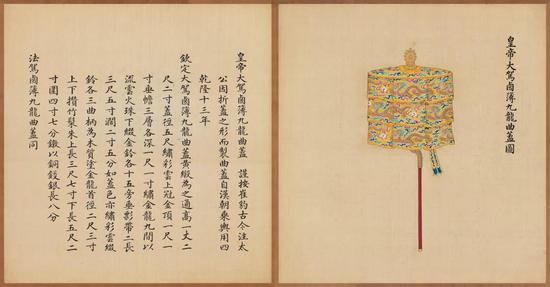 皇帝大駕鹵簿九龍曲蓋圖
皇帝大駕鹵簿九龍曲蓋 謹按崔豹古今注太
公因折蓋之形而製曲蓋自漢朝乘輿用四
乾隆十三年
欽定大駕鹵簿九龍曲蓋黃緞為之通高一丈二
尺二寸蓋徑五尺繡彩雲上冠金頂一尺一
寸垂幨三層各深一尺一寸繡金龍九間以
流雲火珠下綴金鈴各十五旁垂彩帶二長
三尺五寸濶二寸五分如蓋色亦繡彩雲綴
鈴各三曲柄為木質塗金龍首徑二尺三寸
上下攢竹髹朱上長三尺七寸下長五尺二
寸圍四寸七分鐓以銅鋄銀長八分
法駕鹵簿九龍曲蓋同